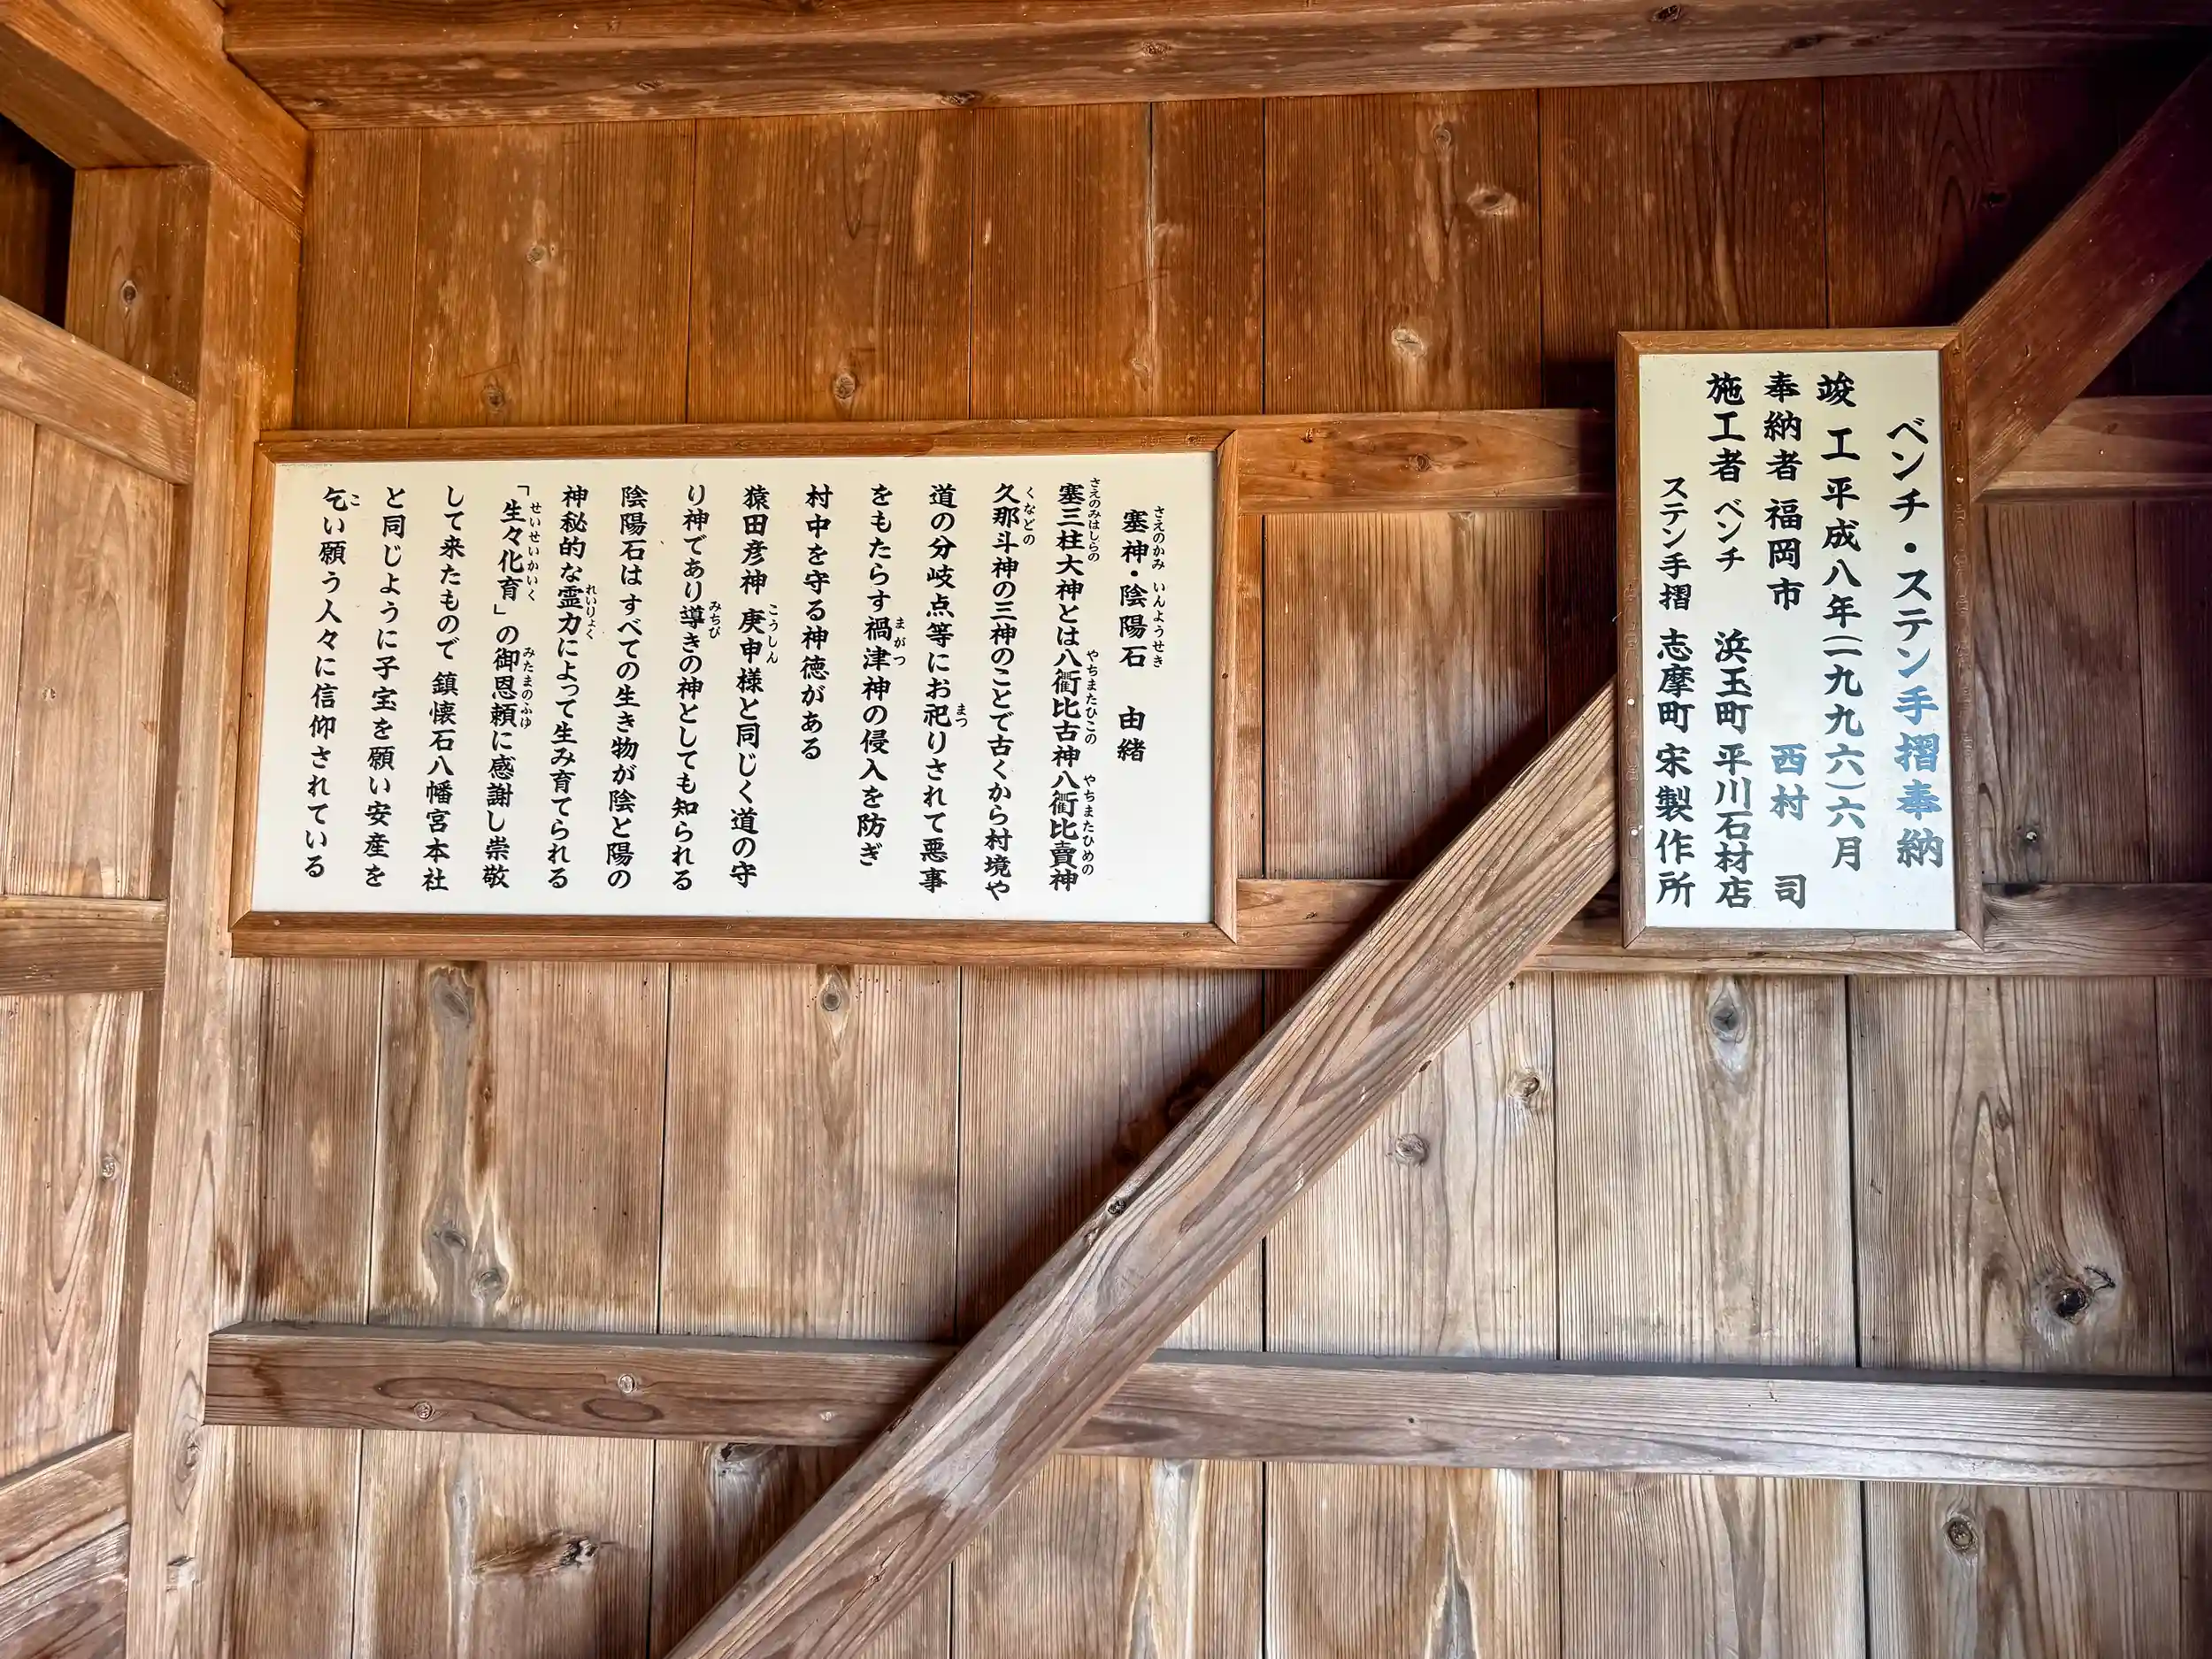 ベンチ・ステン手摺奉納
竣工 平成八年(一九九六)六月
奉納者 福岡市 西村 司
施工者 ベンチ 浜玉町 平川石材店
ステン手摺 志摩町 宋製作所
塞神・陰陽石 由緒
塞三柱大神とは八衢比古神八衢比賣神
久那斗神の三神のことで古くから村境や
道の分岐点等にお祀りされて悪事
をもたらす禍津神の侵入を防ぎ
村中を守る神徳がある
猿田彦神 庚申様と同じく道の守
り神であり導きの神としても知られる
陰陽石は すべての生き物が陰と陽の
神秘的な霊力によって生み育てられる
「生々化育」の御恩頼に感謝し崇敬
して来たもので 鎮懐石八幡宮本社
と同じように子宝を願い安産を
乞い願う人々に信仰されている